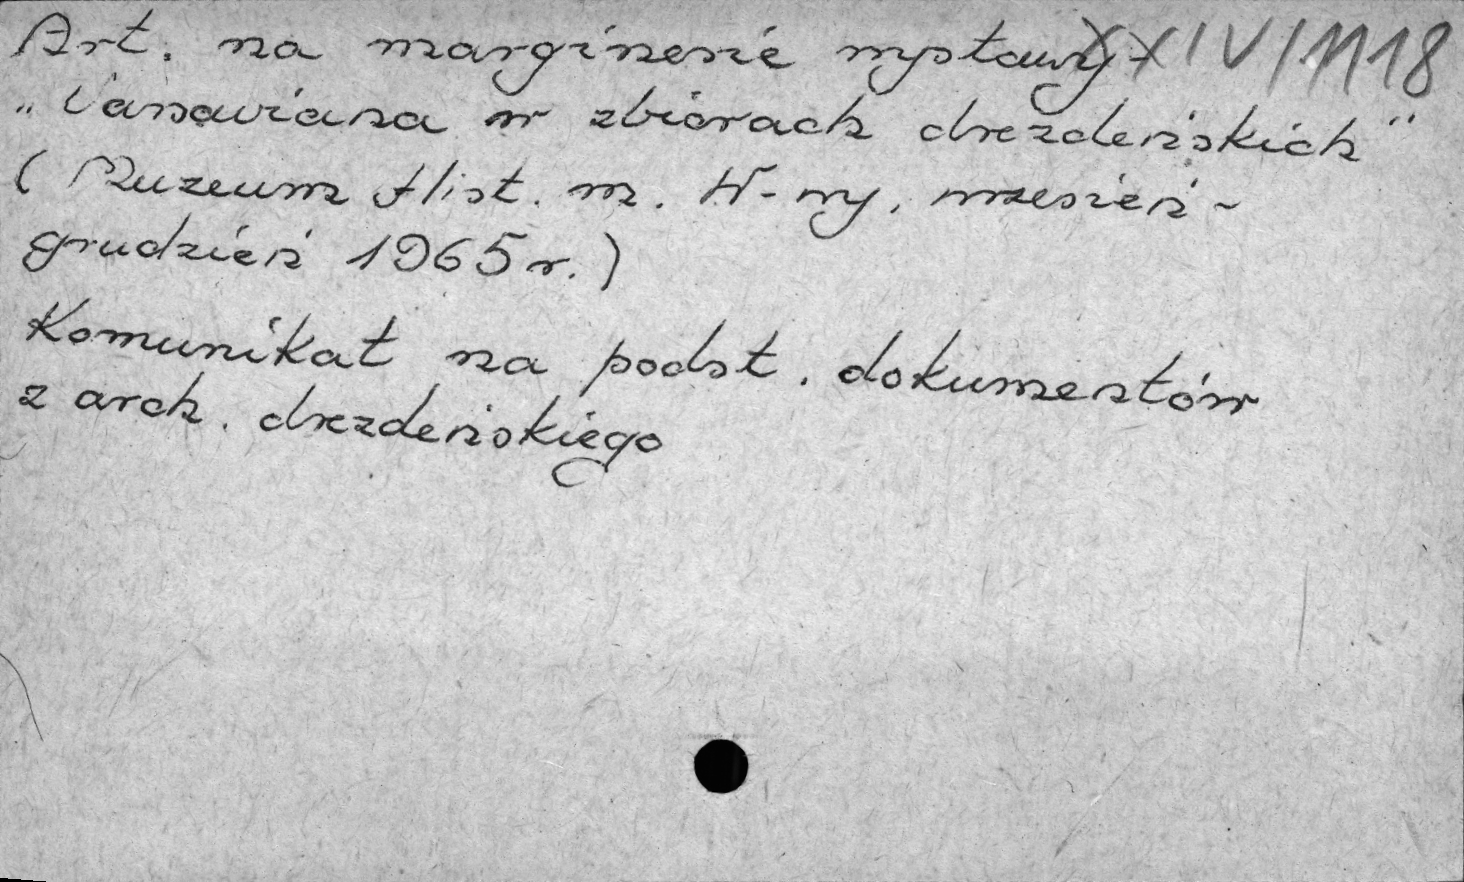 Art. na marginesie wystawy XXIV/1118
„Varsaviana w zbiorach drezdeńskich"
(Muzeum Hist. m. W-wy, wrzesień-
grudzień 1965 r.)
Komunikat na podst. dokumentów
z arch. drezdeńskiego